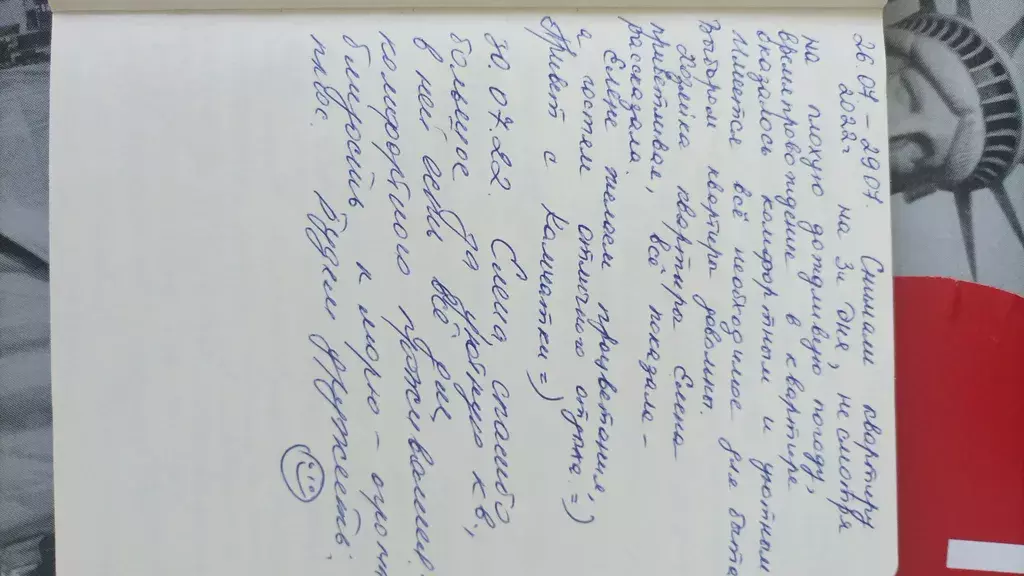 26.07 – 29.07. Снимали квартиру
2022г на 3и дня, не смотря
на плохую дождливую погоду,
времяпровождение в квартире
оказалось комфортным и уютным
Имеется всё необходимое для быта
Выбором квартиры довольны.
Хозяйка квартиры Елена –
приветливая, всё показала –
рассказала.
Елене желаем процветания,
а гостям отличного отдыха =)
Привет с Камчатки =)
30.07.22. Елена, спасибо
большое за уютную кв,
в ней есть всё для
комфортного проживания.
близость к морю – огромн
плюс. Будем дружить!